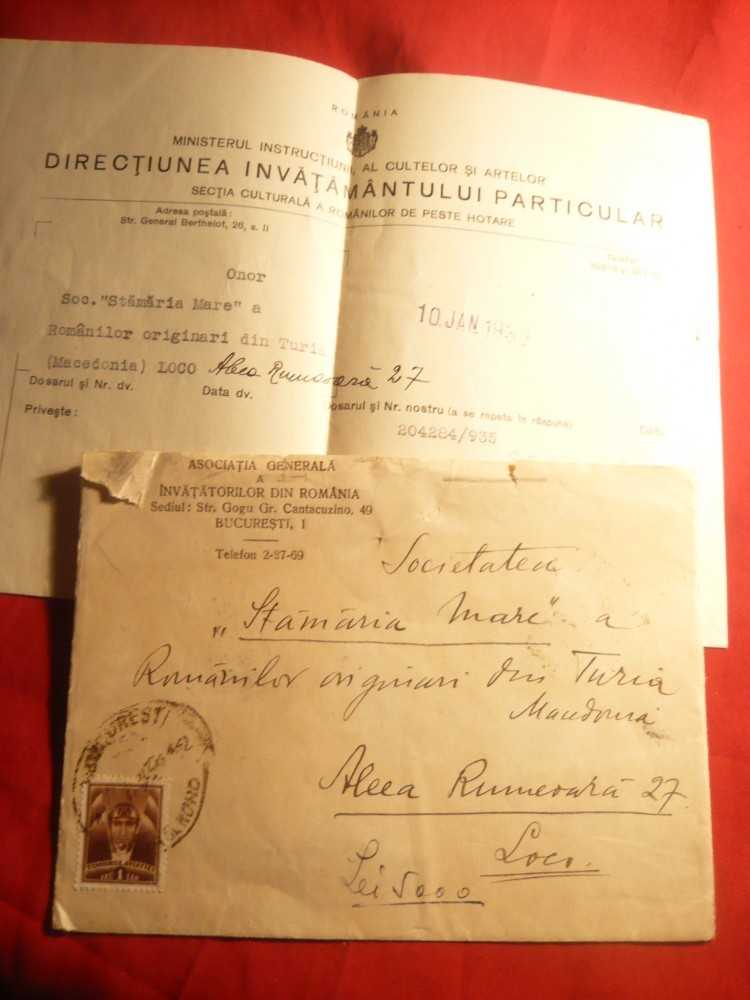 ROMÂNIA
MINISTERUL INSTRUCȚIUNII, AL CULTELOR ȘI ARTELOR
DIRECȚIUNEA INVĂȚĂMÂNTULUI PARTICULAR
SECȚIA CULTURALĂ A ROMÂNILOR DE PESTE HOTARE
Adresa poștală:
Str. General Berthelot, 26, s. II
Telefon
Onor
Soc. "Stămăria Mare" a
Românilor originari din Turia
(Macedonia) LOCO Aleea Rumeoară 27
10 JAN 193
Dosarul și Nr. dv.
Data dv.
Dosarul și Nr. nostru (a se repeta în răspuns)
Data
Privește:
204284/935
ASOCIAȚIA GENERALĂ
A
ÎNVĂȚĂTORILOR DIN ROMÂNIA
Sediul: Str. Gogu Gr. Cantacuzino, 49
BUCUREȘTI, I
Telefon 2-27-69
Societatea
„Stămăria Mare" a
Românilor originari din Turia
Macedonia
Aleea Rumeoară 27
Loco.
Lei 5000
BUCUREȘTI
TIMBRUL AVIAȚIEI
LEU 1 LEU